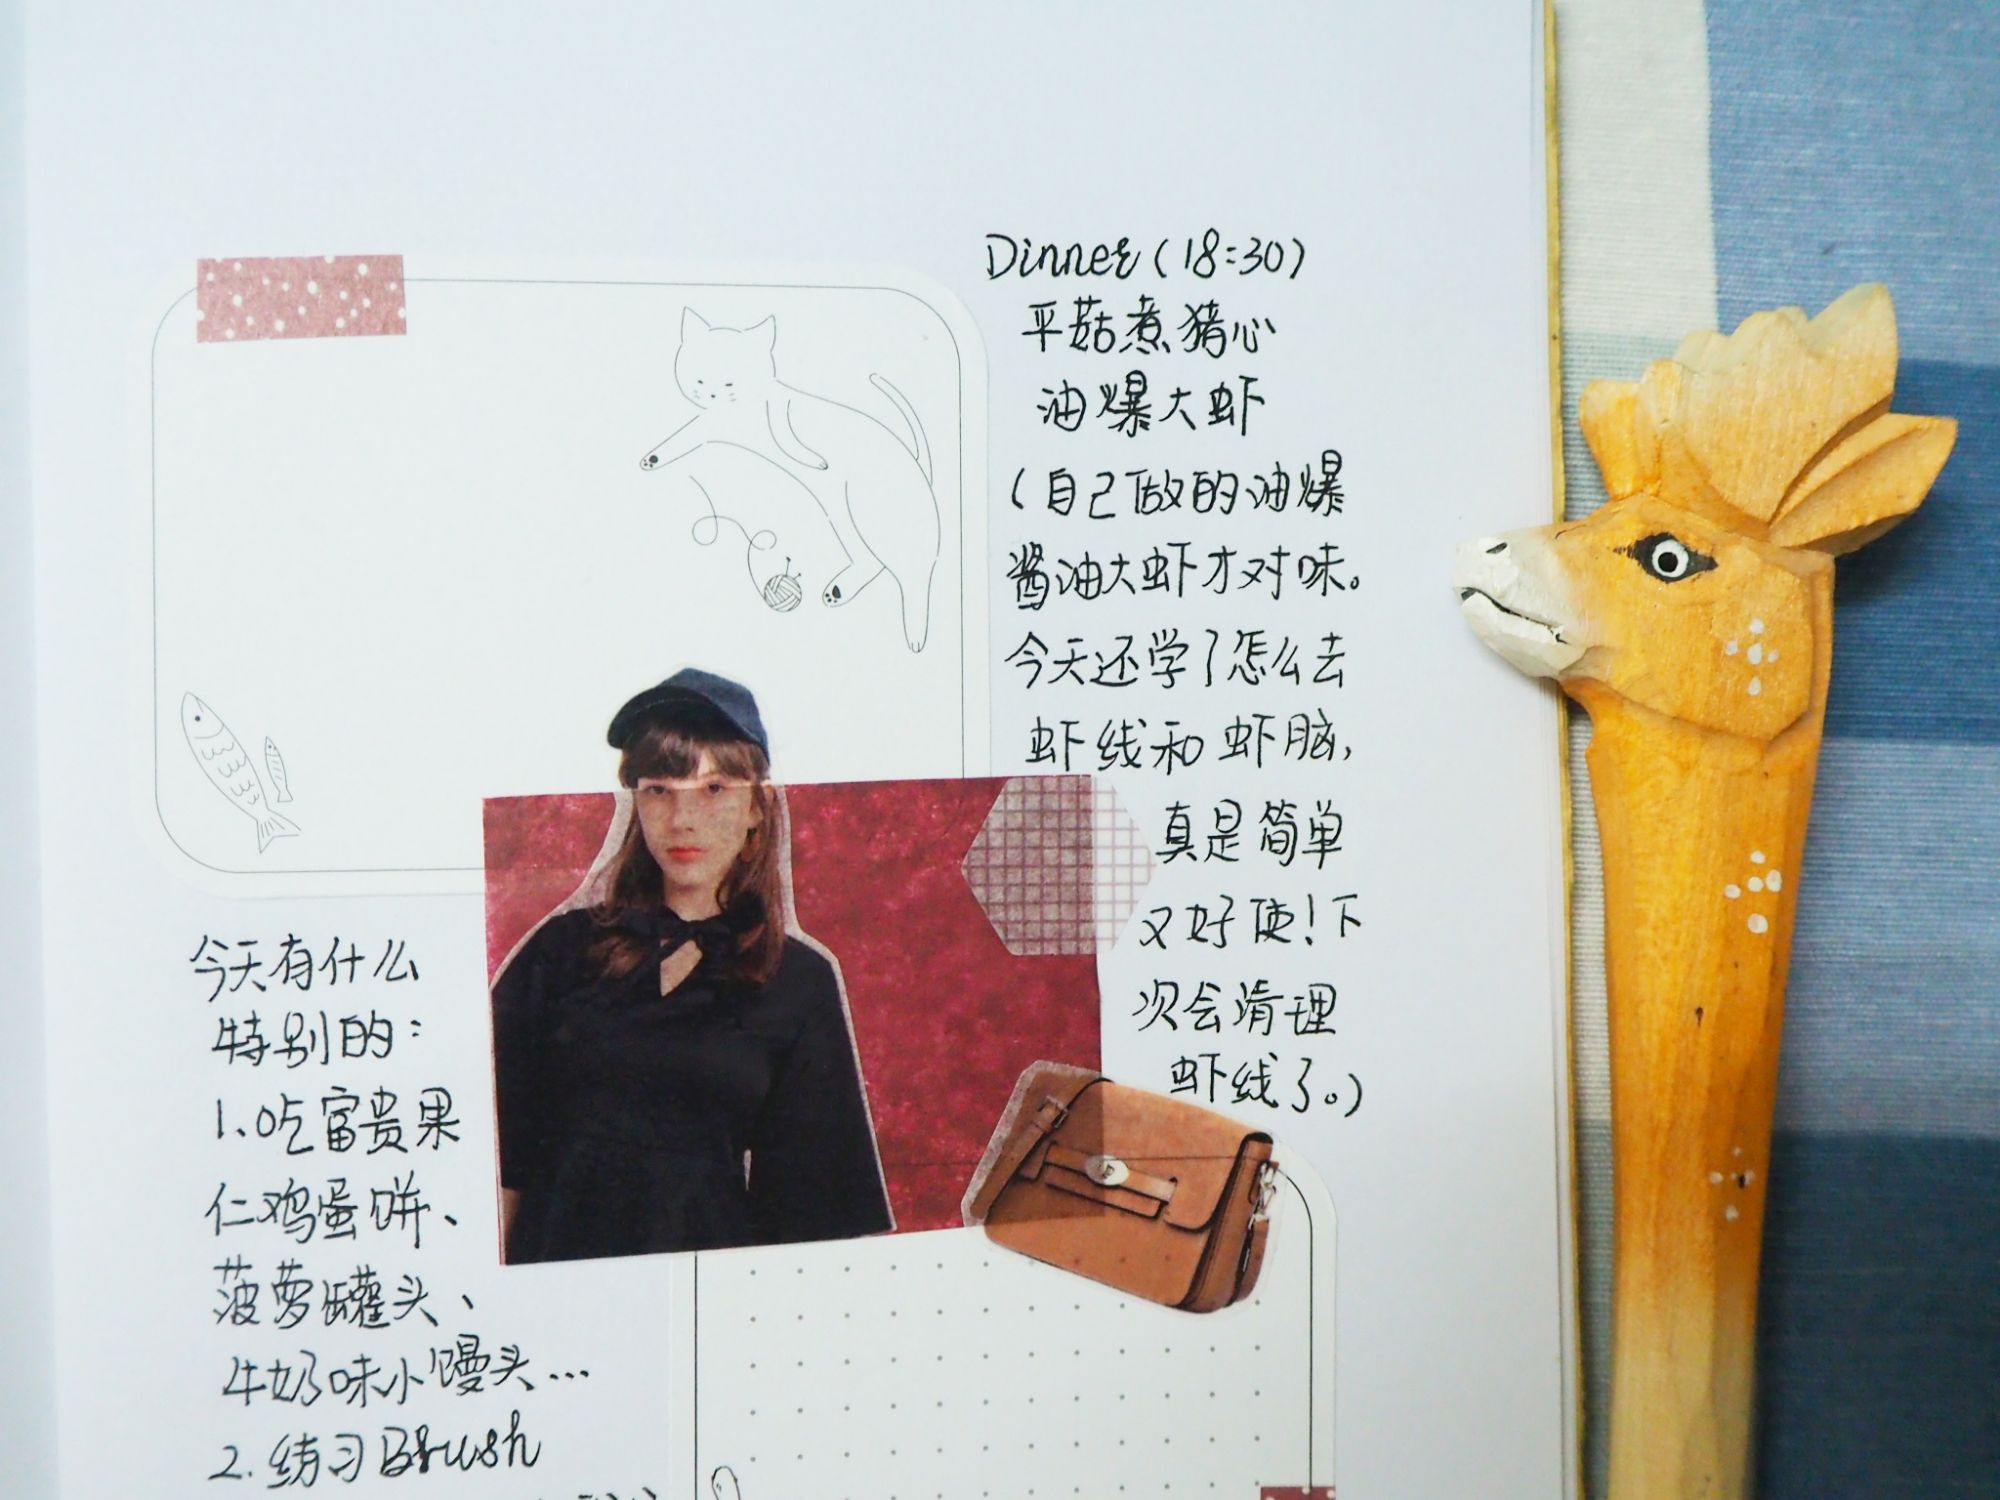 Dinner (18:30)
平菇煮猪心
油爆大虾
(自己做的油爆
酱油大虾才对味。
今天还学了怎么去
虾线和虾脑,
真是简单
又好使!下
次会清理
虾线了。)
今天有什么
特别的:
1、吃富贵果
仁鸡蛋饼、
菠萝罐头、
牛奶味小馒头...
2. 练习Brush